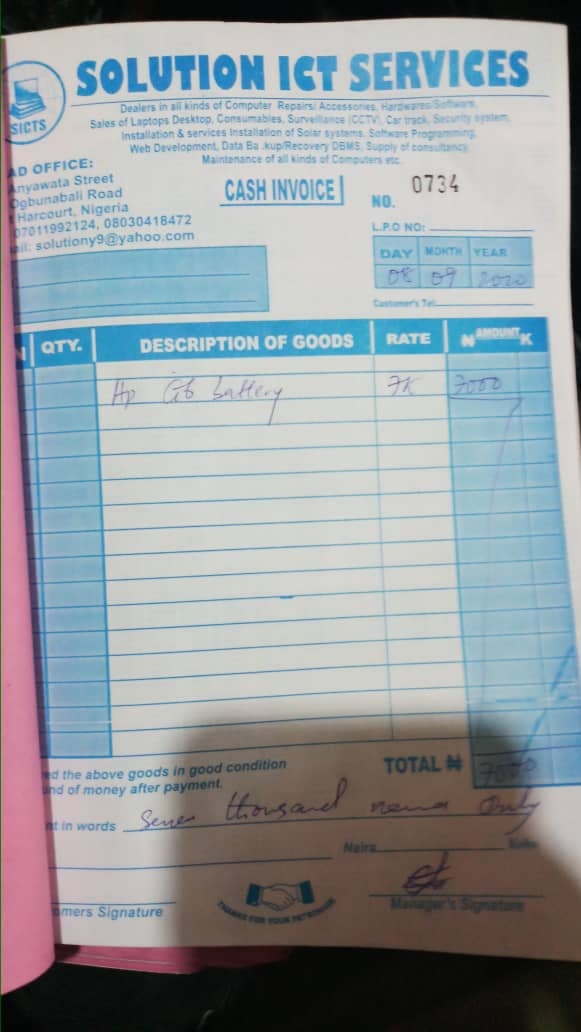 SOLUTION ICT SERVICES
SICTS
Dealers in all kinds of Computer Repairs/ Accessories, Hardwares/Softwares,
Sales of Laptops Desktop, Consumables, Surveillance (CCTV), Car track, Security system,
Installation & services Installation of Solar systems, Software Programming,
Web Development, Data Ba.kup/Recovery DBMS, Supply of consultancy,
Maintenance of all kinds of Computers etc.
AD OFFICE:
Anyawata Street
Ogbunabali Road
t Harcourt, Nigeria
07011992124, 08030418472
ail: solutiony9@yahoo.com
CASH INVOICE
NO. 0734
L.P.O NO:
DAY MONTH YEAR
08 09 2020
Customer's Tel:
N QTY. DESCRIPTION OF GOODS RATE AMOUNT ₦ K
Hp battery 7K 7000
ed the above goods in good condition
und of money after payment.
TOTAL ₦ 7000
nt in words Seven thousand naira Only
Naira Kobo
omers Signature
THANKS FOR YOUR PATRONAGE
Manager's Signature